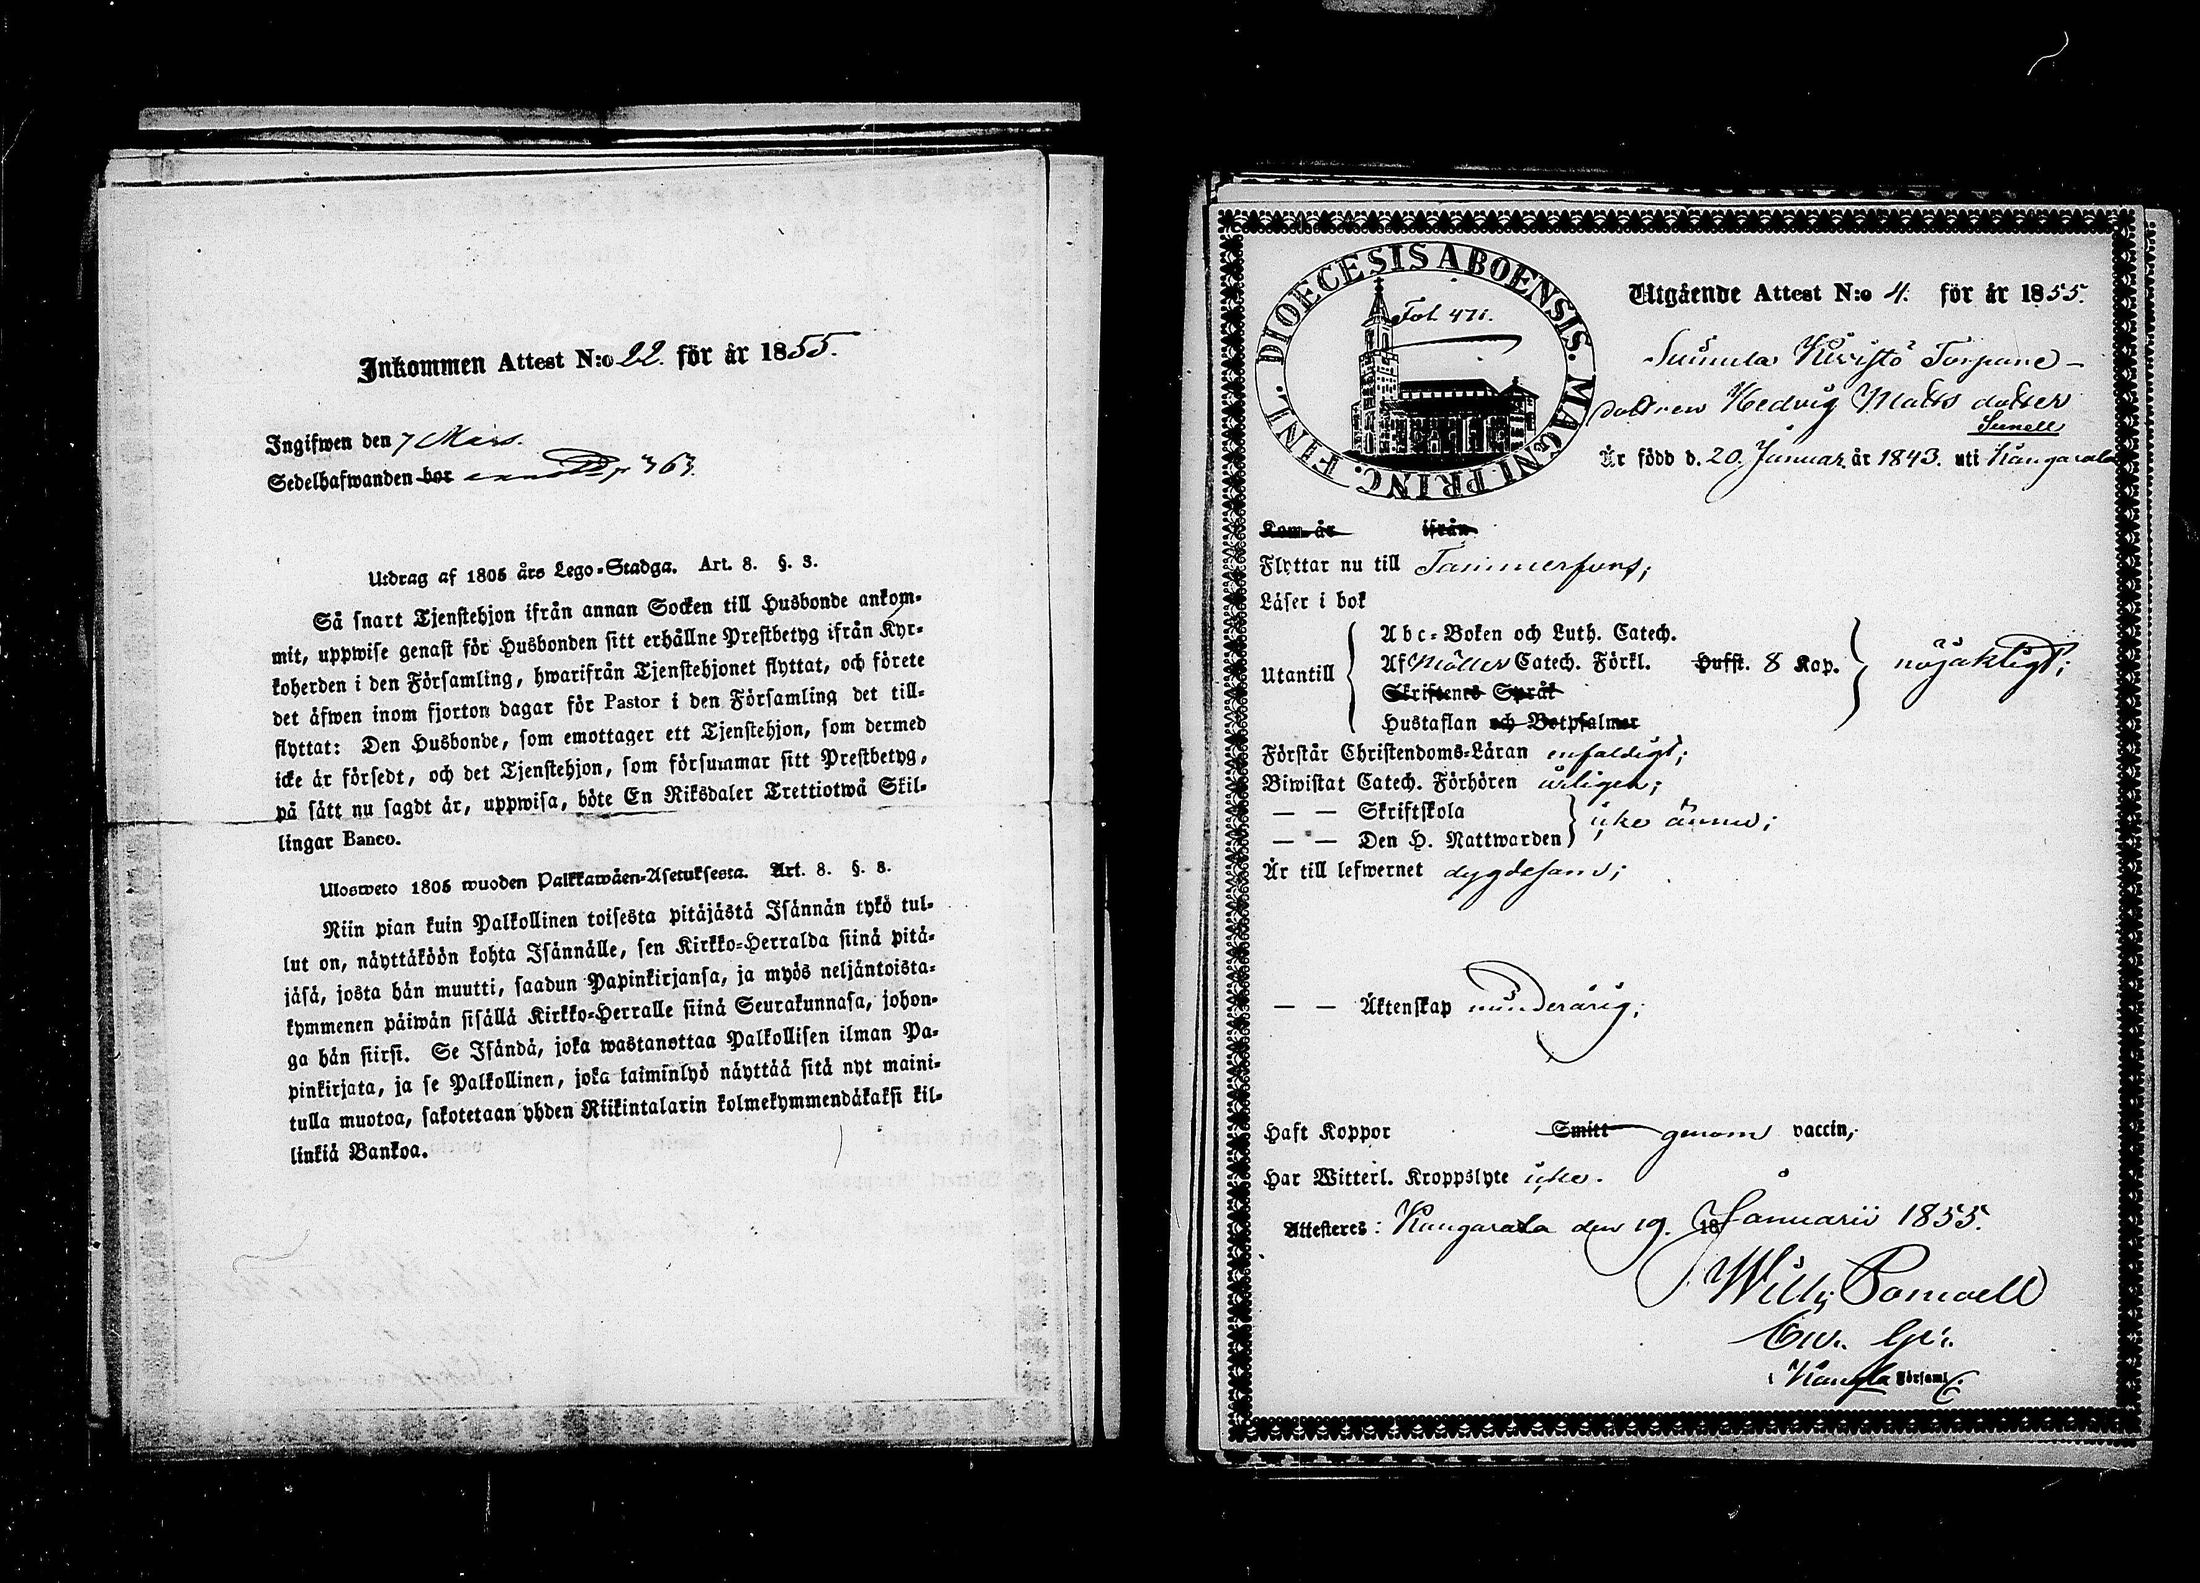 Inkommen Attest N:o 22. för år 1855.
Ingifwen den 7 Mars.
Sedelhafwanden bor p. 363.
Utdrag af 1805 års Lego-Stadga. Art. 8. §. 3.
Så snart Tjenstehjon ifrån annan Socken till Husbonde ankom-
mit, uppwise genast för Husbonden sitt erhållne Prestbetyg ifrån Kyr-
koherden i den Församling, hwarifrån Tjenstehjonet flyttat, och förete
det äfwen inom fjorton dagar för Pastor i den Församling det till-
flyttat: Den Husbonde, som emottager ett Tjenstehjon, som dermed
icke är försedt, och det Tjenstehjon, som försummar sitt Prestbetyg,
på sätt nu sagdt är, uppwisa, böte En Riksdaler Trettiotwå Skil-
lingar Banco.
Ulosweto 1805 wuoden Palkkawäen-Asetuksesta. Art. 8. §. 8.
Niin pian kuin Palkollinen toisesta pitäjästä Isännän tykö tul-
lut on, näyttäköön kohta Isännälle, sen Kirkko-Herralda siinä pitä-
jäsä, josta hän muutti, saadun Papinkirjansa, ja myös neljäntoista-
kymmenen päiwän sisällä Kirkko-Herralle siinä Seurakunnasa, johon-
ga hän siirsi. Se Isändä, joka wastanottaa Palkollisen ilman Pa-
pinkirjata, ja se Palkollinen, joka laiminlyö näyttää sitä nyt maini-
tulla muotoa, sakotetaan yhden Riikintalarin kolmekymmendäkaksi kil-
linkiä Bankoa.
DIOECESIS ABOENSIS. MAGNI PRINC. FINL.
Fol. 471.
Utgående Attest N:o 4. för år 1855.
Suinula Kivistö Torpare-
dottren Hedvig Matts dotter
Sunell
Är född d. 20. Januar. år 1843. uti Kangasala
Kom år ifrån
Flyttar nu till Tammerfors;
Läser i bok
Utantill
Abc-Boken och Luth. Catech.
Af Möllers Catech. Förkl. Hufst. 8 Kap.
Skriftenes Språk
Hustaflan och Botpsalmer
nöjaktigt;
Förstår Christendoms-Läran enfaldigt;
Biwistat Catech. Förhören årligen;
— — Skriftskola
— — Den H. Nattwarden
icke ännu;
Är till lefwernet dygdesam;
— — Äktenskap minderårig;
Haft Koppor Smitt genom vaccin;
Har Witterl. Kroppslyte icke.
Attesteres: Kangasala den 19. 18 Januarii 1855.
Willy Pomoell
Kangsla Församl.